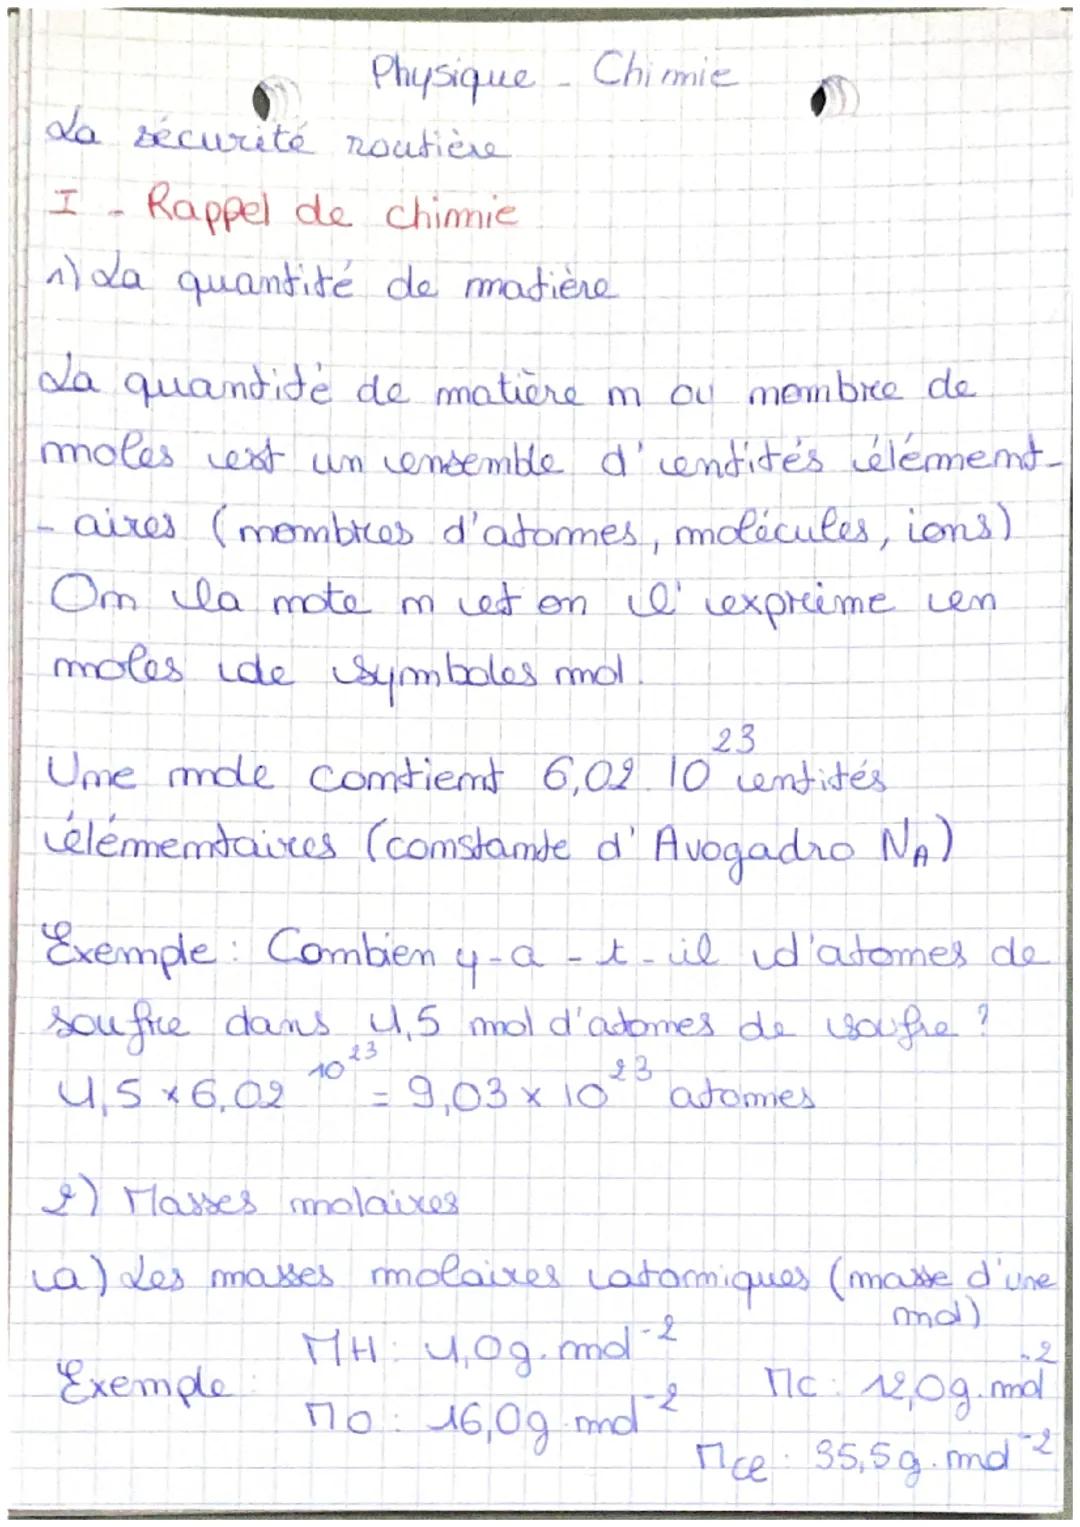 Physique - Chimie
La sécurité routière
I - Rappel de chimie
1) La quantité de matière
La quantité de matière n ou nombre de
moles est un ensemble d'entités élément-
- aires (nombres d'atomes, molécules, ions)
On la note n et on l'exprime en
moles de symboles mol.
Une mole contient 6,02.10²³ entités
élémentaires (constante d'Avogadro NA)
Exemple : Combien y-a-t-il d'atomes de
soufre dans 1,5 mol d'atomes de soufre ?
1,5 × 6,02 10²³ = 9,03 × 10²³ atomes
2) Masses molaires
a) Les masses molaires atomiques (masse d'une
mol)
Exemple : MH : 1,0g.mol⁻²
MC : 12,0g.mol⁻²
MO : 16,0g.mol⁻²
MCl : 35,5g.mol⁻²